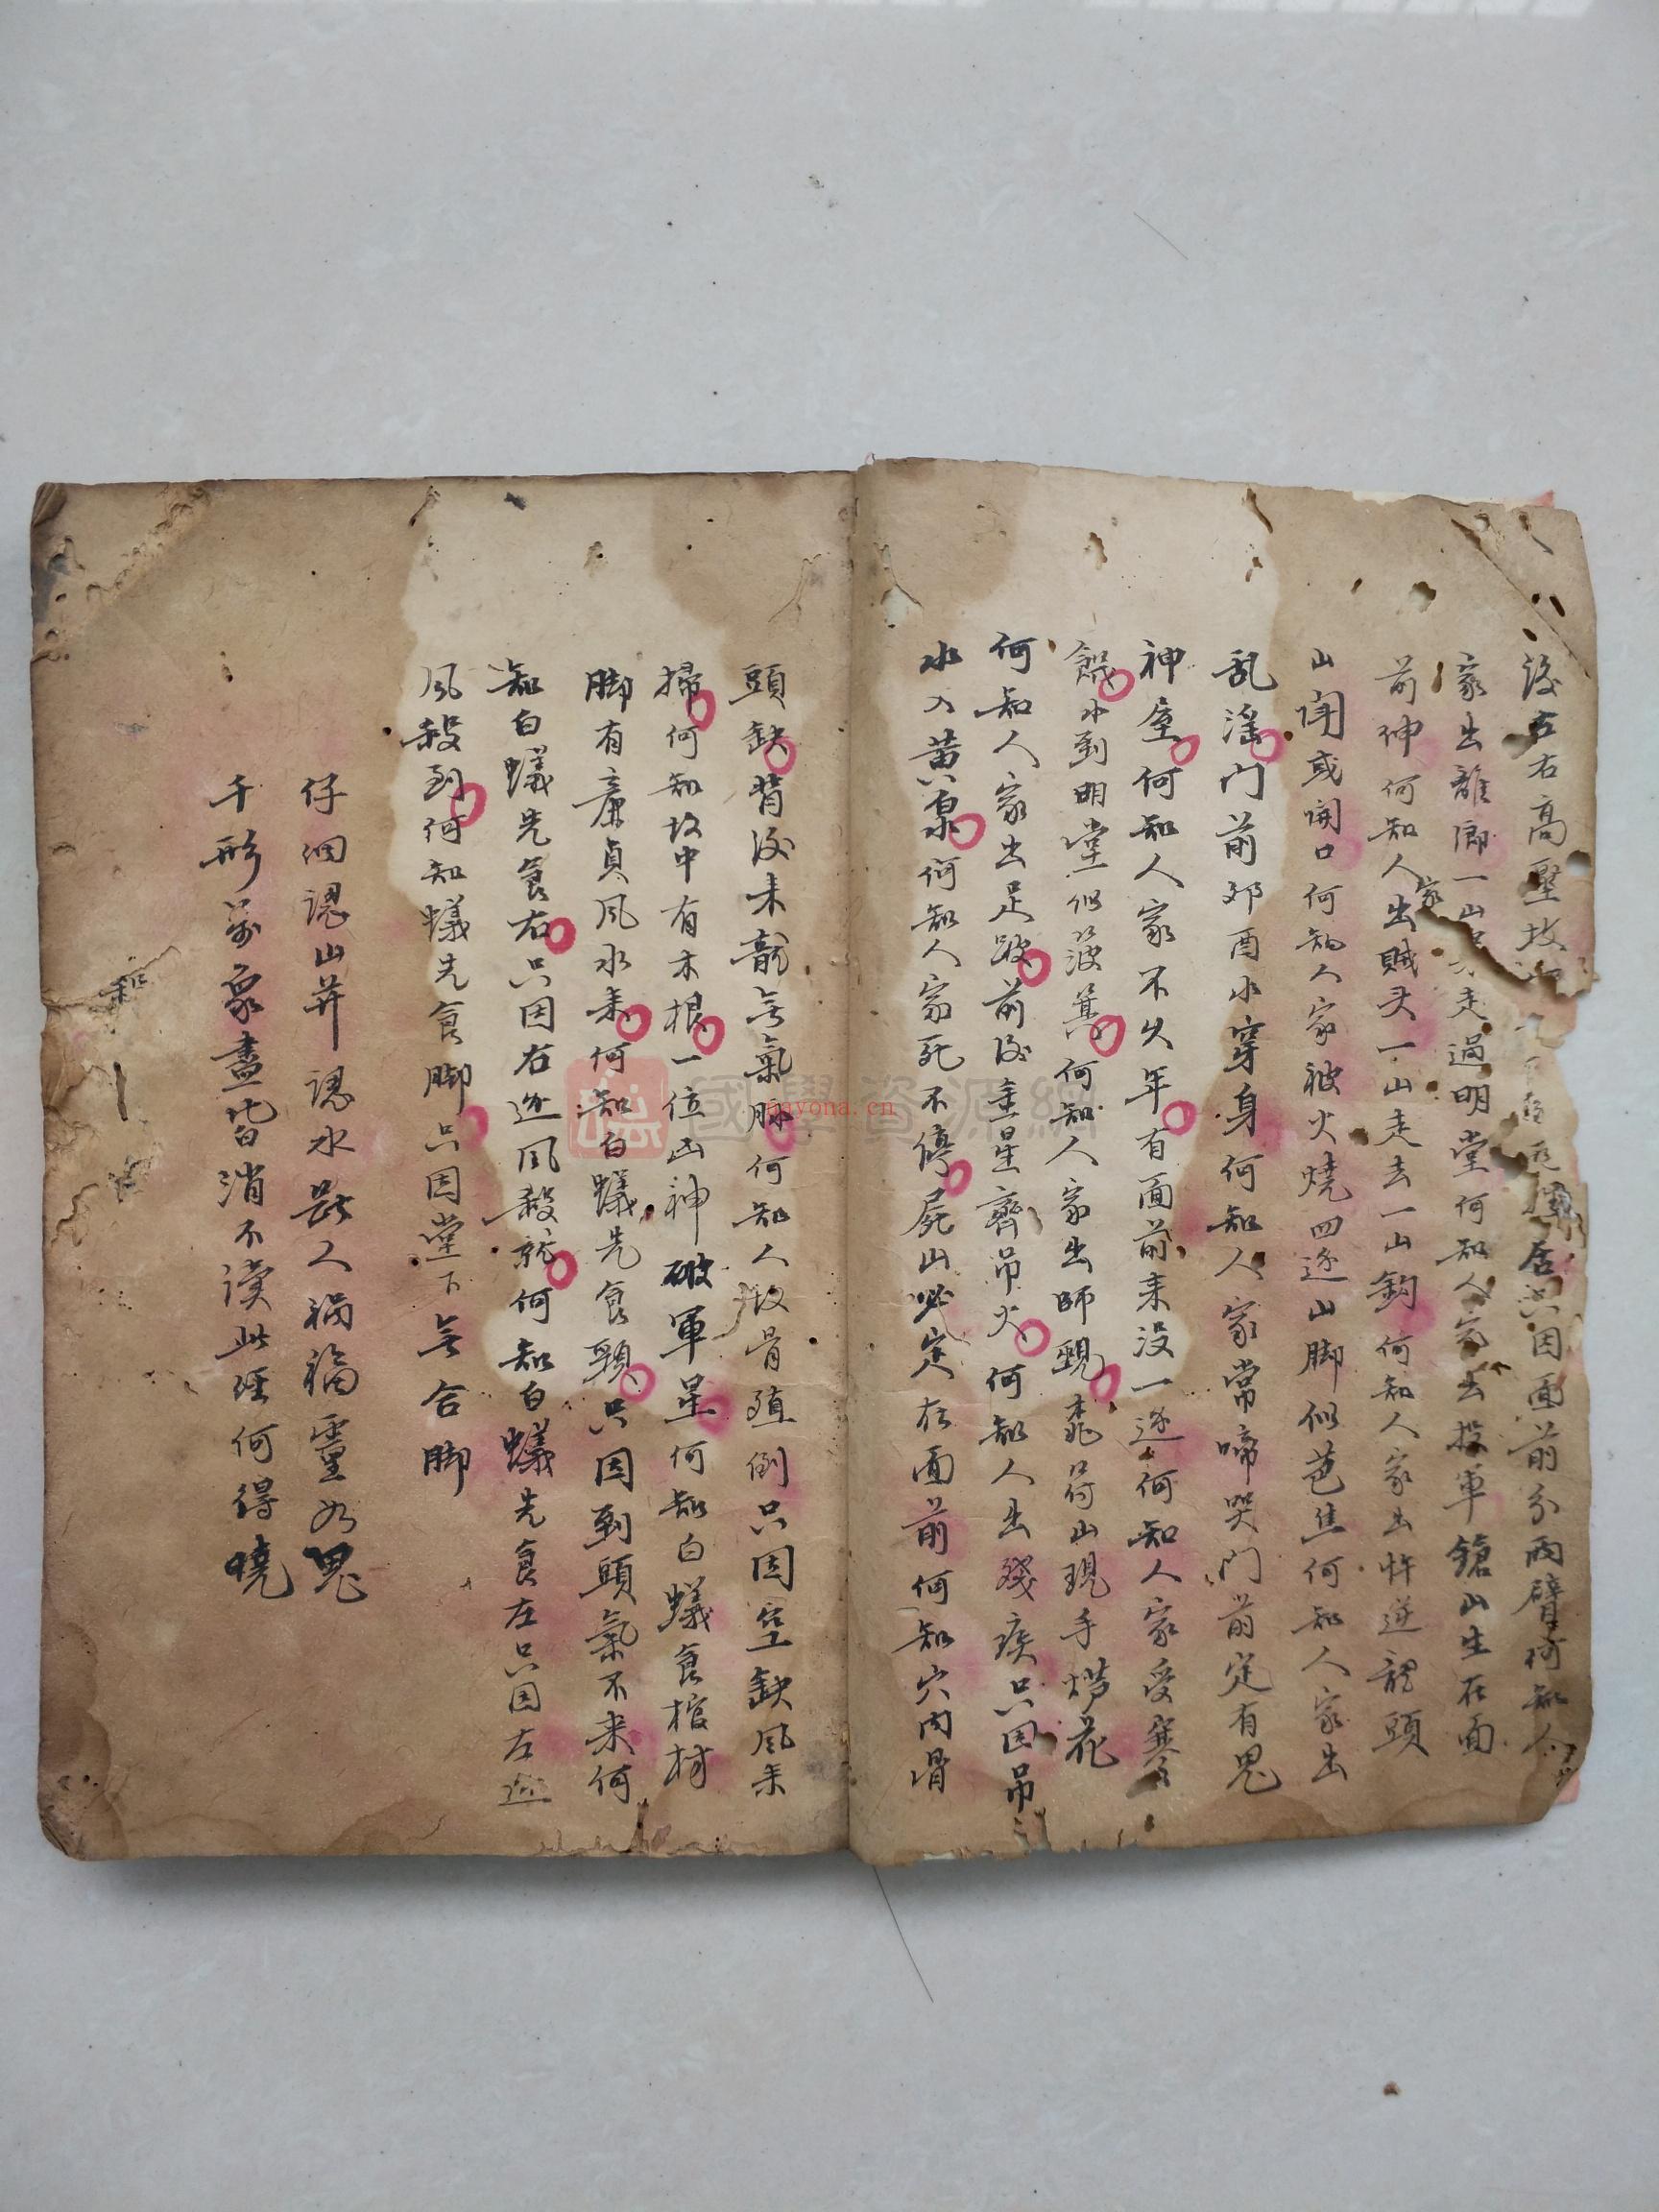 後左右高壓坟 居只因面前分兩臂何知人
家出離鄉一山 走過明堂何知人家出投軍鎗山生在面
前伸何知人家出賊头一山走去一山鈎何知人家出忤逆龍頭
山閉或開口何知人家被火燒四逐山脚似芭焦何知人家出
乱滛门前邜酉水穿身何知人家常啼哭门前定有鬼
神屋何知人家不久年有面前来没一逐何知人家受寒
餓水到明堂似簸箕何知人家出師 符山現手㨂花
何知人家出足跛前後 星齊吊火何知人出殘疾只因吊
水入黄泉何知人家死不停屍山必定在面前何知穴内骨
頭缺背後来龍無氣脉何知人坟骨 倒只因空缺风来
掃何知坟中有木根一位凶神破軍星何知白蟻食棺材
脚有亷貞风水来何知白蟻先食頸只因到頭氣不来何
知白蟻先食右只因右逐风殺就何知白蟻先食左只因左逐
风殺到何知蟻先食脚只因堂下無合脚
仔細認山并認水 人禍福靈如鬼
千形萬象盡皆消不讀此經何得曉
國學資源網
pnyona.cn